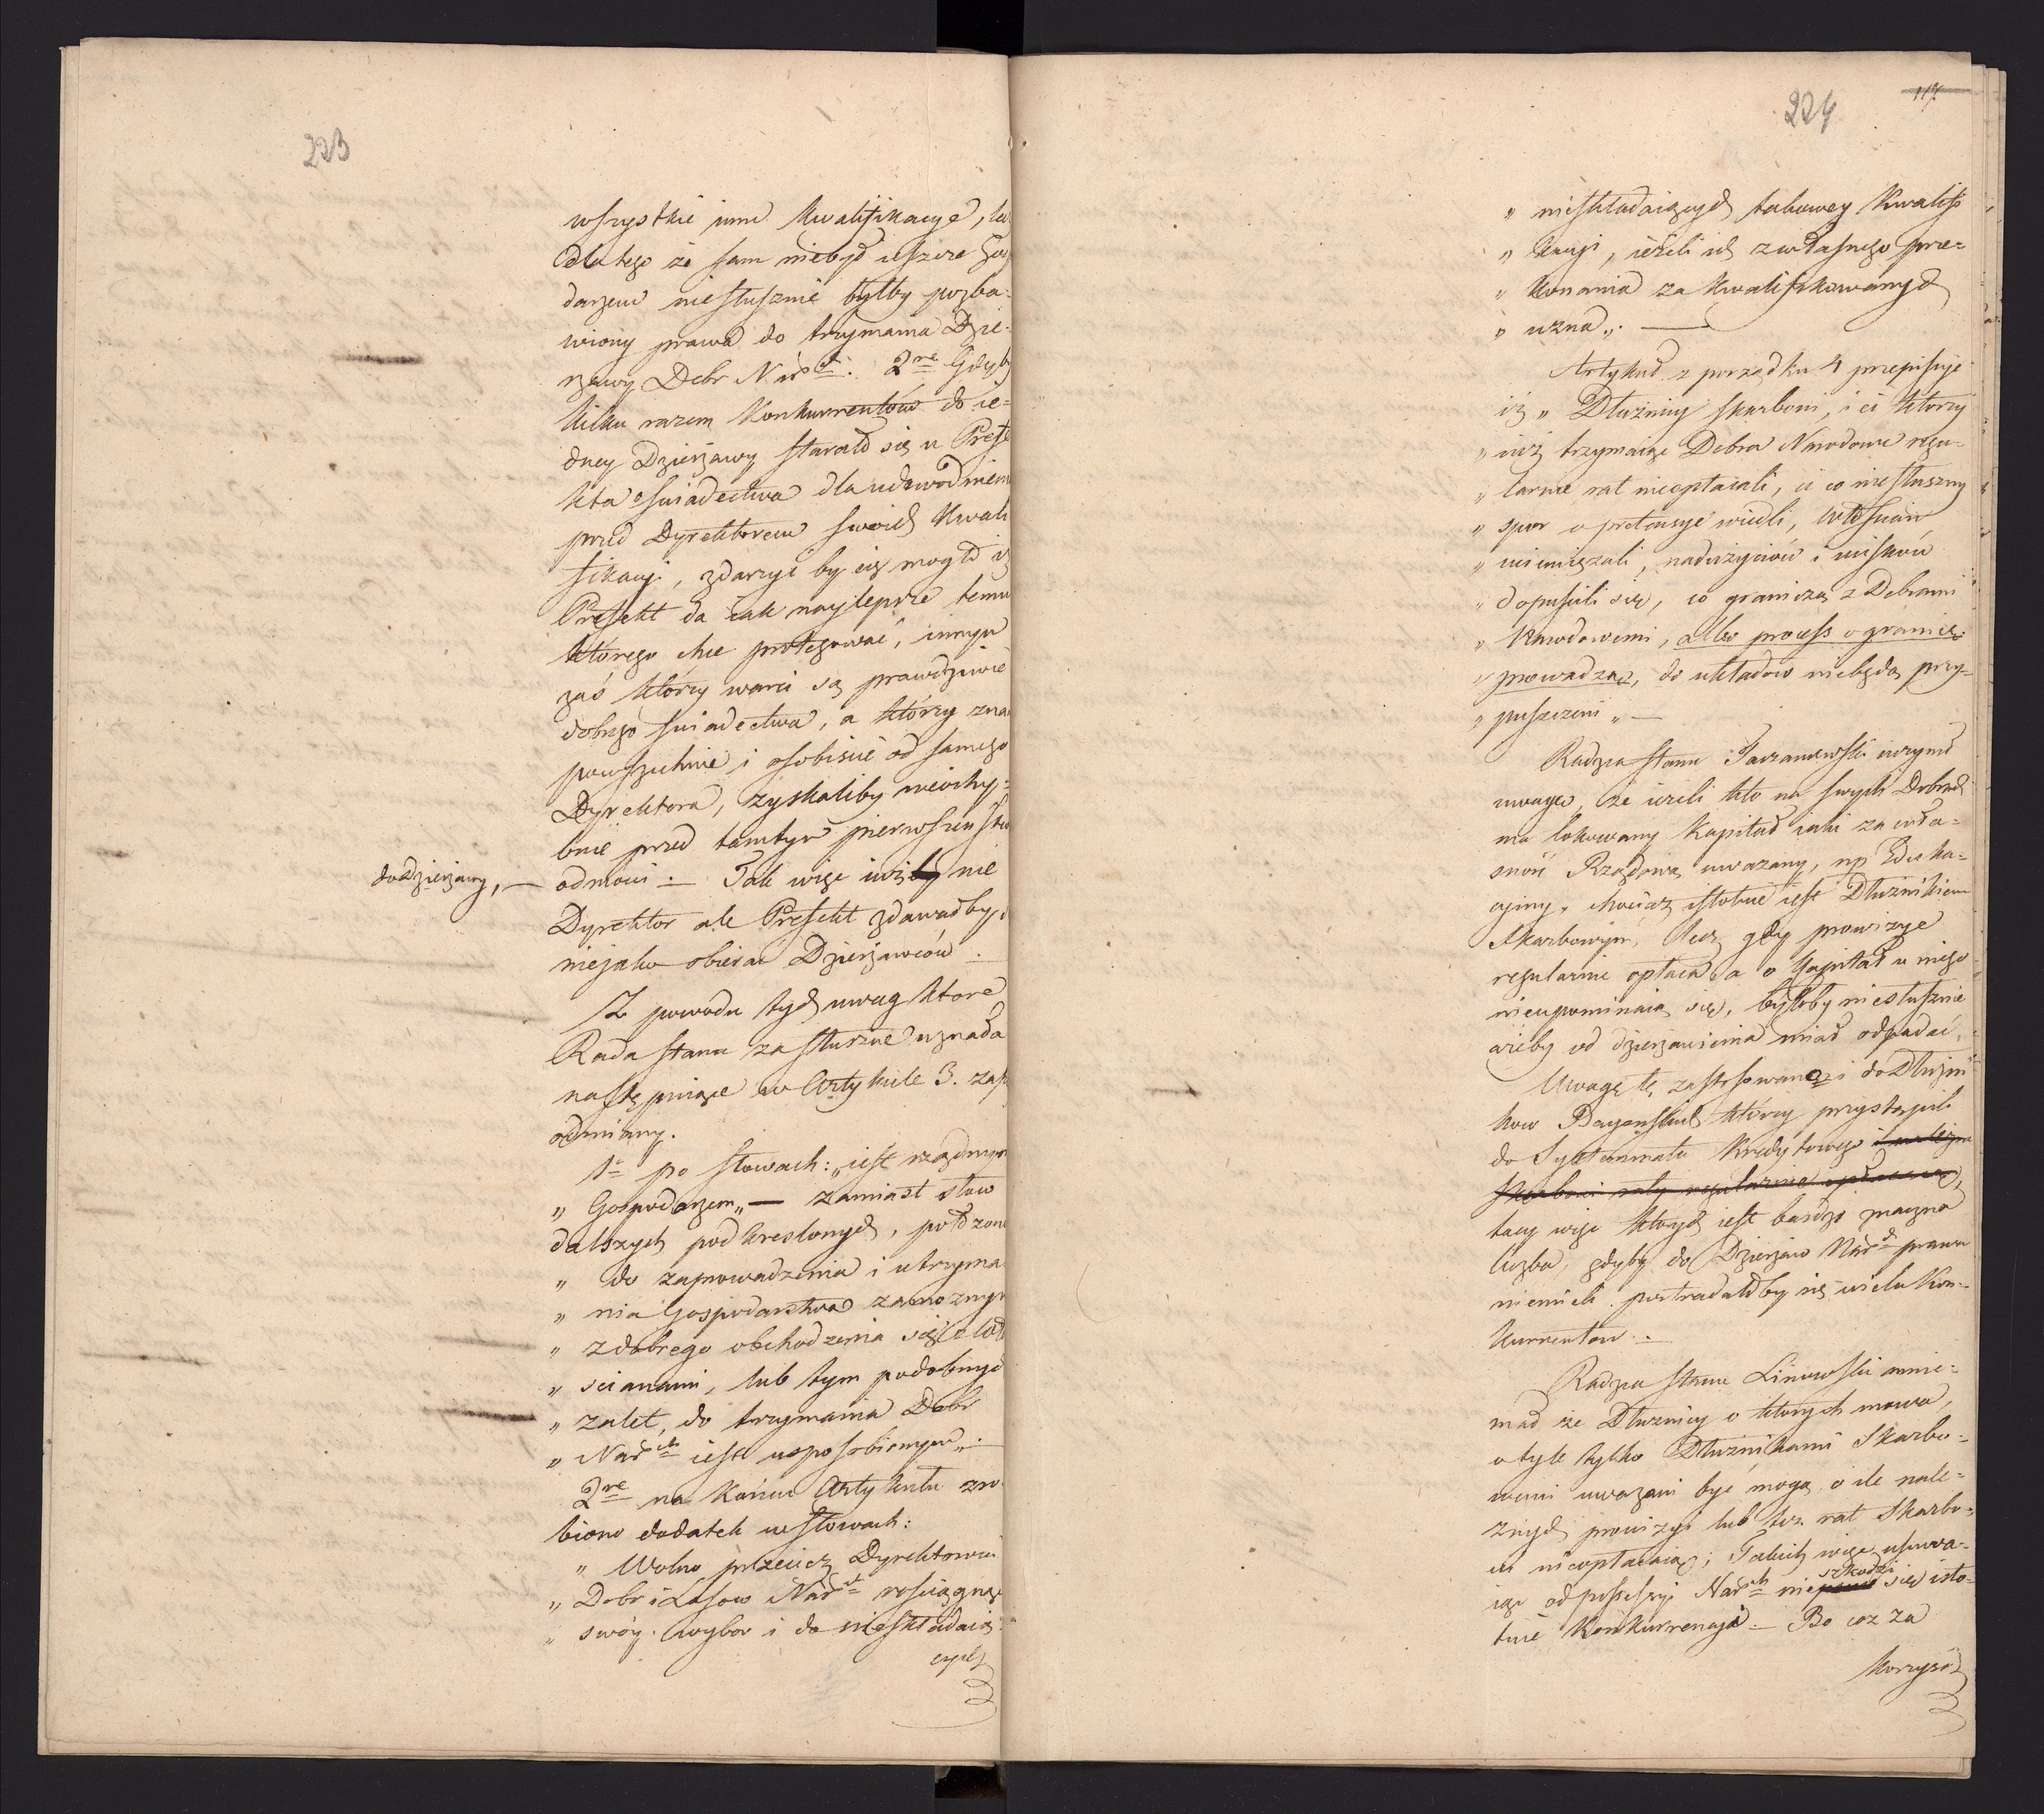 223
wszystkie inne kwalifikacye,
dlatego że sam niebył ieszcze Gos
darzem niesłusznie byłby pozba-
wiony prawa do trzymania Dzie-
rzawy Dobr Nar. 2re Gdyby
kilku razem Konkurrentów do ie-
dney Dzierżawy starało się u Prefe
kta o świadectwa dla udowodnieni
przed Dyrektorem swoich Kwali
fikacyi, zdarzyć by się mogło iż
Prefekt da iak naylepsze temu
którego chce protegować, innym
zaś którzy warci są prawdziwie
dobrego świadectwa, a którzy zna
powszechnie i osobiście od samego
Dyrektora, zyskaliby nieochy-
bnie przed tamtym pierwszeństwo
do Dzierżawy, —
odmówi. — Tak więc iuż by nie
Dyrektor ale Prefekt zdawałby
nieiako obierać Dzierżawców.
Z powodu tych uwag które
Rada Stanu za słuszne uznała
następuiące w Artykule 3.
odmiany.
1o po słowach: „iest rządnym
„ Gospodarzem„ — zamiast słow
dalszych podkreslonych, położono
„ do zaprowadzenia i utrzyma
„ nia Gospodarstwa zamożnym
„ z dobrego obchodzenia się z Wło
„ scianami, lub tym podobnych
„ zalet, do trzymania Dobr
„ Narch iest usposobionym„.
2re na końcu Artykułu zro-
biono dodatek w słowach:
„ Wolno przecież Dyrektorowi
„ Dobr i Lasow Narch rosciągnąć
„ swóy wybor i do nieskładaią-
cych
224
117.
„ nieskładaiących takowey Kwalifi
„ kacyi, ieżeli ich z własnego prze-
„ konania za kwalifikowanych
„ uzna„. —
Artykuł z porządku 4 przepisuje
iż „ Dłużnicy skarbowi, i ci którzy
„ iuż trzymaiąc Dobra Narodowe regu-
„ larnie rat nieopłacali, ci co niesłuszny
„ spor o pretensye wiedli, Włościan
„ uciemiężali, nadużyciów i ucisków
„ dopuścili się, co graniczą z Dobrami
„ Narodowemi, albo process o granicę
„ prowadzą, do układow niebędą przy-
„ puszczeni„ —
Radzca Stanu Tarzanowski uczynił
uwagę, że ieżeli kto na swych Dobrach
ma lokowany Kapitał iaki za wła-
sność Rządową uważany, np Eduka-
cyiny, chociaż istotnie iest Dłużnikiem
Skarbowym, lecz gdy prowizye
regularnie opłaca a o Kapitał u niego
nieupominaią się, byłoby niesłusznie
ażeby od dzierżawienia miał odpadać.
Uwagę tę zastosowano i do Dłużni
kow Bayońskich którzy przystąpili
do Systemmatu Kredytowego i należne
Skarbowi raty regularnie opłacaią,
tacy więc których iest bardzo znaczna
liczba, gdyby do Dzierżaw Narch prawa
niemieli, postradałoby się wielu Kon-
kurrentow. —
Radzca Stanu Linowski mnie-
mał że Dłużnicy o których mowa,
o tyle tylko Dłużnikami Skarbo-
wemi uważani być mogą, o ile nale-
żnych prowizyi lub też rat Skarbo-
wi nieopłacaią; Takich więc usuwa-
iąc od possessyi Narch nie szkodzi się isto-
tnie Konkurrencyi. — Bo coż za
korzyść